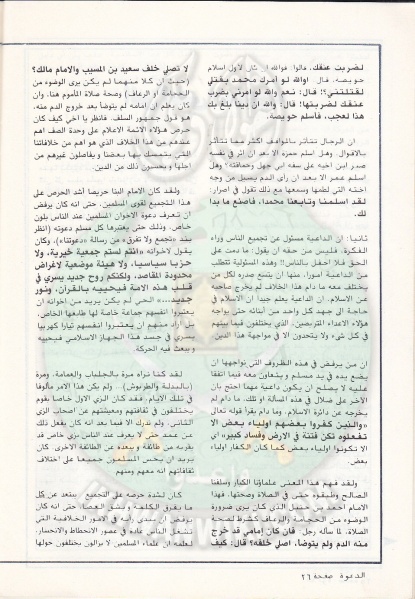 لضربت عنقك. قالوا: فوالله ان كان لأول اسلام
حويصه. قال: اوالله لو أمرك محمد بقتلي
لقتلتني؟! قال: نعم والله لو امرني بضرب
عنقك لضربتها! قال: والله ان دينا بلغ بك
هذا لعجب، فأسلم حويصه.
ان الرجال تتأثر بالمواقف اكثر مما تتأثر
بالاقوال. وهل اسلم حمزه الا بعد ان اثر في نفسه
صدر ابن اخيه على سفه ابي جهل وحماقته؟ وهل
اسلم عمر الا بعد ان رأى الدم يسيل من وجه
اخته التي لطمها وسمعها مع ذلك تقول في اصرار:
لقد اسلمنا وتابعنا محمدا، فاصنع ما بدا
لك.
ثانيا: ان الداعية مسئول عن تجميع الناس وراء
الفكرة، فليس من حقه ان يقول: ما دمت على
الحق فلا احفل بالناس!! وهذه المسئولية تتطلب
من الداعية امورا، منها ان يتسع صدره لكل من
يختلف معه ما دام هذا الخلاف لم يخرج صاحبه
عن الاسلام. ان الداعية يعلم جيدا ان الاسلام في
حاجة الى جهد كل واحد من ابنائه حتى يواجه
هؤلاء الاعداء المتربصين، الذي يختلفون فيما بينهم
في كل شيء ولا يتحدون الا في مواجهة هذا الدين.
ان من يرفض في هذه الظروف التي نواجهها ان
يضع يده في يد مسلم ويتعاون معه فيما اتفقا
عليه لا يصلح ان يكون داعية مهما احتج بان
الآخر على ضلال في هذه المسألة او تلك، ما دام لم
يخرجه عن دائرة الاسلام. وما دام يقرأ قوله تعالى
«والذين كفروا بعضهم اولياء بعض الا
تفعلوه تكن فتنة في الارض وفساد كبير» اي
الا تكونوا اولياء بعض كما كان الكفار اولياء
بعض.
ولقد فهم هذا المعنى علماؤنا الكبار وسلفنا
الصالح وطبقوه حتى في الصلاة وصحتها. فهذا
الامام احمد بن حنبل الذي كان يرى ضرورة
الوضوء من الحجامة والرعاف كشرط لصحة
الصلاة، لما سأله رجل: فان كان امامي قد خرج
منه الدم ولم يتوضأ، اصلي خلفه؟ قال: كيف
لا تصلي خلف سعيد بن المسيب والامام مالك؟
(حيث ان كلا منهما لم يكن يرى الوضوء من
الحجامة او الرعاف) وصحة صلاة المأموم هنا، وان
كان يعلم ان امامه لم يتوضأ بعد خروج الدم منه،
هو قول جمهور السلف. فانظر يا اخي كيف كان
حرص هؤلاء الائمة الاعلام على وحدة الصف اهم
عندهم من هذا الخلاف الذي هو اهم من خلافاتنا
التي يتمسك بها بعضنا ويفاصلون غيرهم من
اجلها ويحسبون ان ذلك من الدين.
ولقد كان الامام البنا حريصا أشد الحرص على
هذا التجميع لقوى المسلمين، حتى انه كان يرفض
ان تعرف دعوة الاخوان المسلمين عند الناس بلون
خاص، وذلك حتى يعتبرها كل مسلم دعوته (انظر
بند «تجمع ولا تفرق» من رسالة «دعوتنا»، وكان
يقول لاخوانه «انتم لستم جمعية خيرية، ولا
حزبا سياسيا، ولا هيئة موضعية لاغراض
محدودة المقاصد، ولكنكم روح جديد يسري في
قلب هذه الامة فيحييه بالقرآن، ونور
جديد...» الخ لم يكن يريد من اخوانه ان
يعتبروا انفسهم جماعة خاصة لها طابعها الخاص،
بل اراد منهم ان يعتبروا انفسهم تيارا كهربيا
يسري في جسد هذا الجهاز الاسلامي فيحييه
ويبعث فيه الحركة.
لقد كنا نراه مرة بالجلباب والعمامة، ومرة
(بالبدلة والطربوش) - ولم يكن هذا الامر مألوفا
في تلك الايام، فقد كان الزي الاول خاصا بقوم
يختلفون في ثقافتهم ومعيشتهم عن اصحاب الزي
الثاني، ولم ندرك الا فيما بعد انه كان يفعل ذلك
عن عمد، حتى لا يعرف عند الناس بزي خاص قد
يقربه من طائفة ويبعده عن الطائفة الاخرى. كان
يريد ان يحس المسلمون جميعا على اختلاف
ثقافاتهم انه معهم ومنهم.
كان لشدة حرصه على التجميع، يبتعد عن كل
ما يفرق الكلمة ويشق العصا، حتى انه كان
يرفض ان يبدي رأيه في الامور الخلافية التي
تشغل الناس عادة في عصور الانحطاط والانحسار،
لعلمه ان علماء المسلمين لا يزالون يختلفون حولها
الدعوة صفحة ٢٦